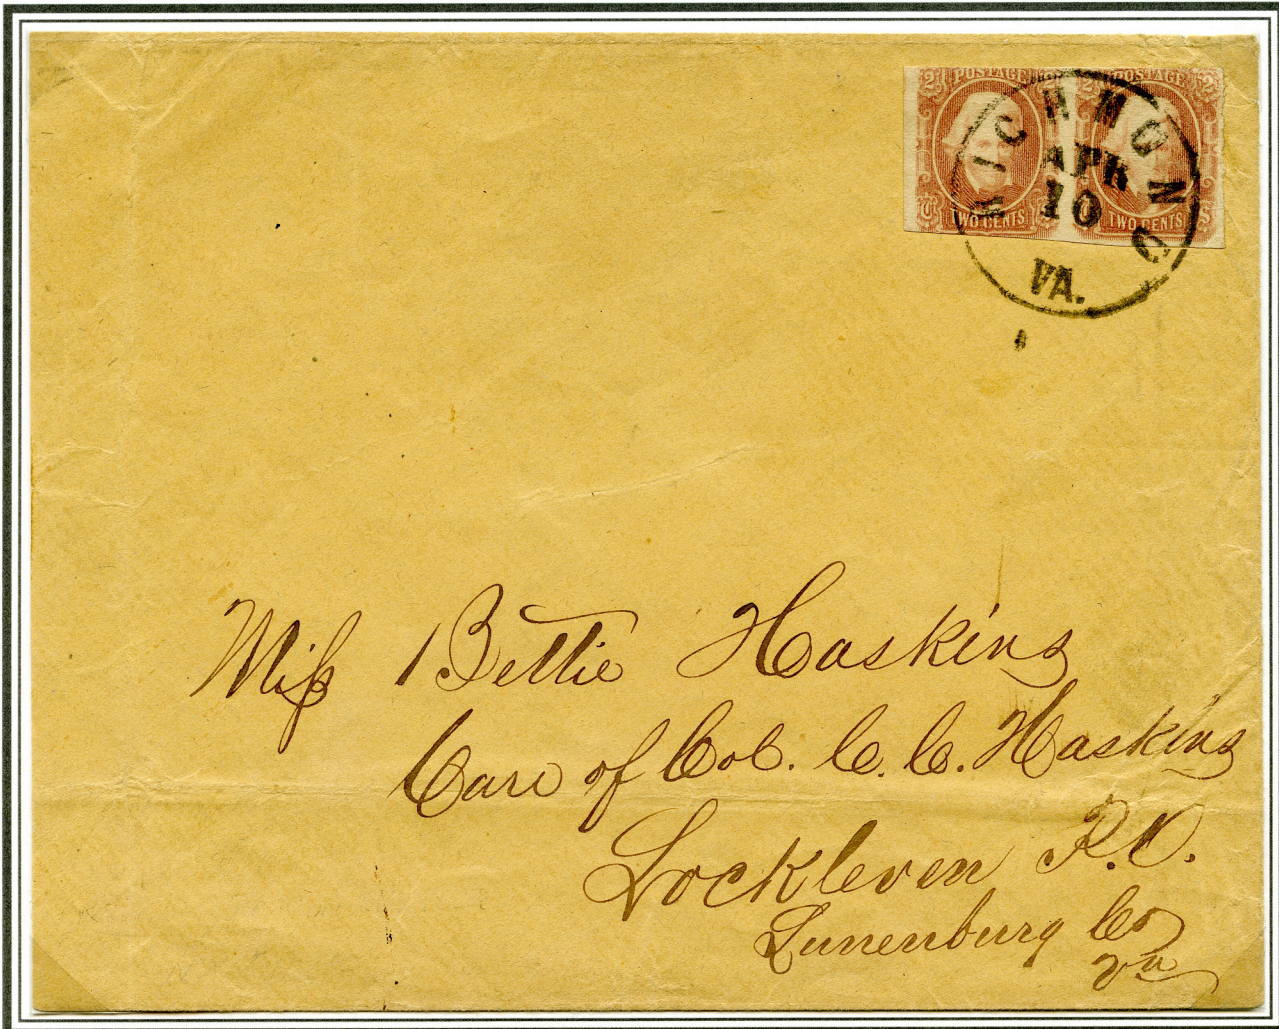 2 POSTAGE 2 POSTAGE 2
TWO CENTS TWO CENTS
RICHMOND
APR
10
VA.
Miss Bettie Haskins
Care of Col. C. C. Haskins
Lockleven P.O.
Lunenburg Co
Va